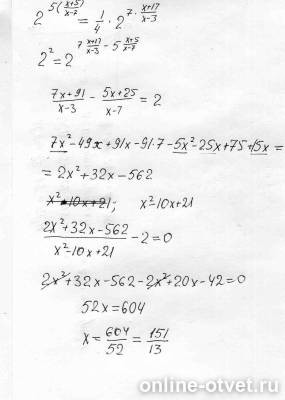 2^{5(\frac{x+5}{x-7})} = \frac{1}{4} · 2^{7 · \frac{x+17}{x-3}}
2^2 = 2^{7\frac{x+17}{x-3} - 5\frac{x+5}{x-7}}
\frac{7x+91}{x-3} - \frac{5x+25}{x-7} = 2
7x²-49x+91x-91·7-5x²-25x+75+15x =
= 2x²+32x-562
x²-10x+21; x²-10x+21
\frac{2x²+32x-562}{x²-10x+21} - 2 = 0
2x²+32x-562-2x²+20x-42=0
52x=604
x = \frac{604}{52} = \frac{151}{13}
online-otvet.ru